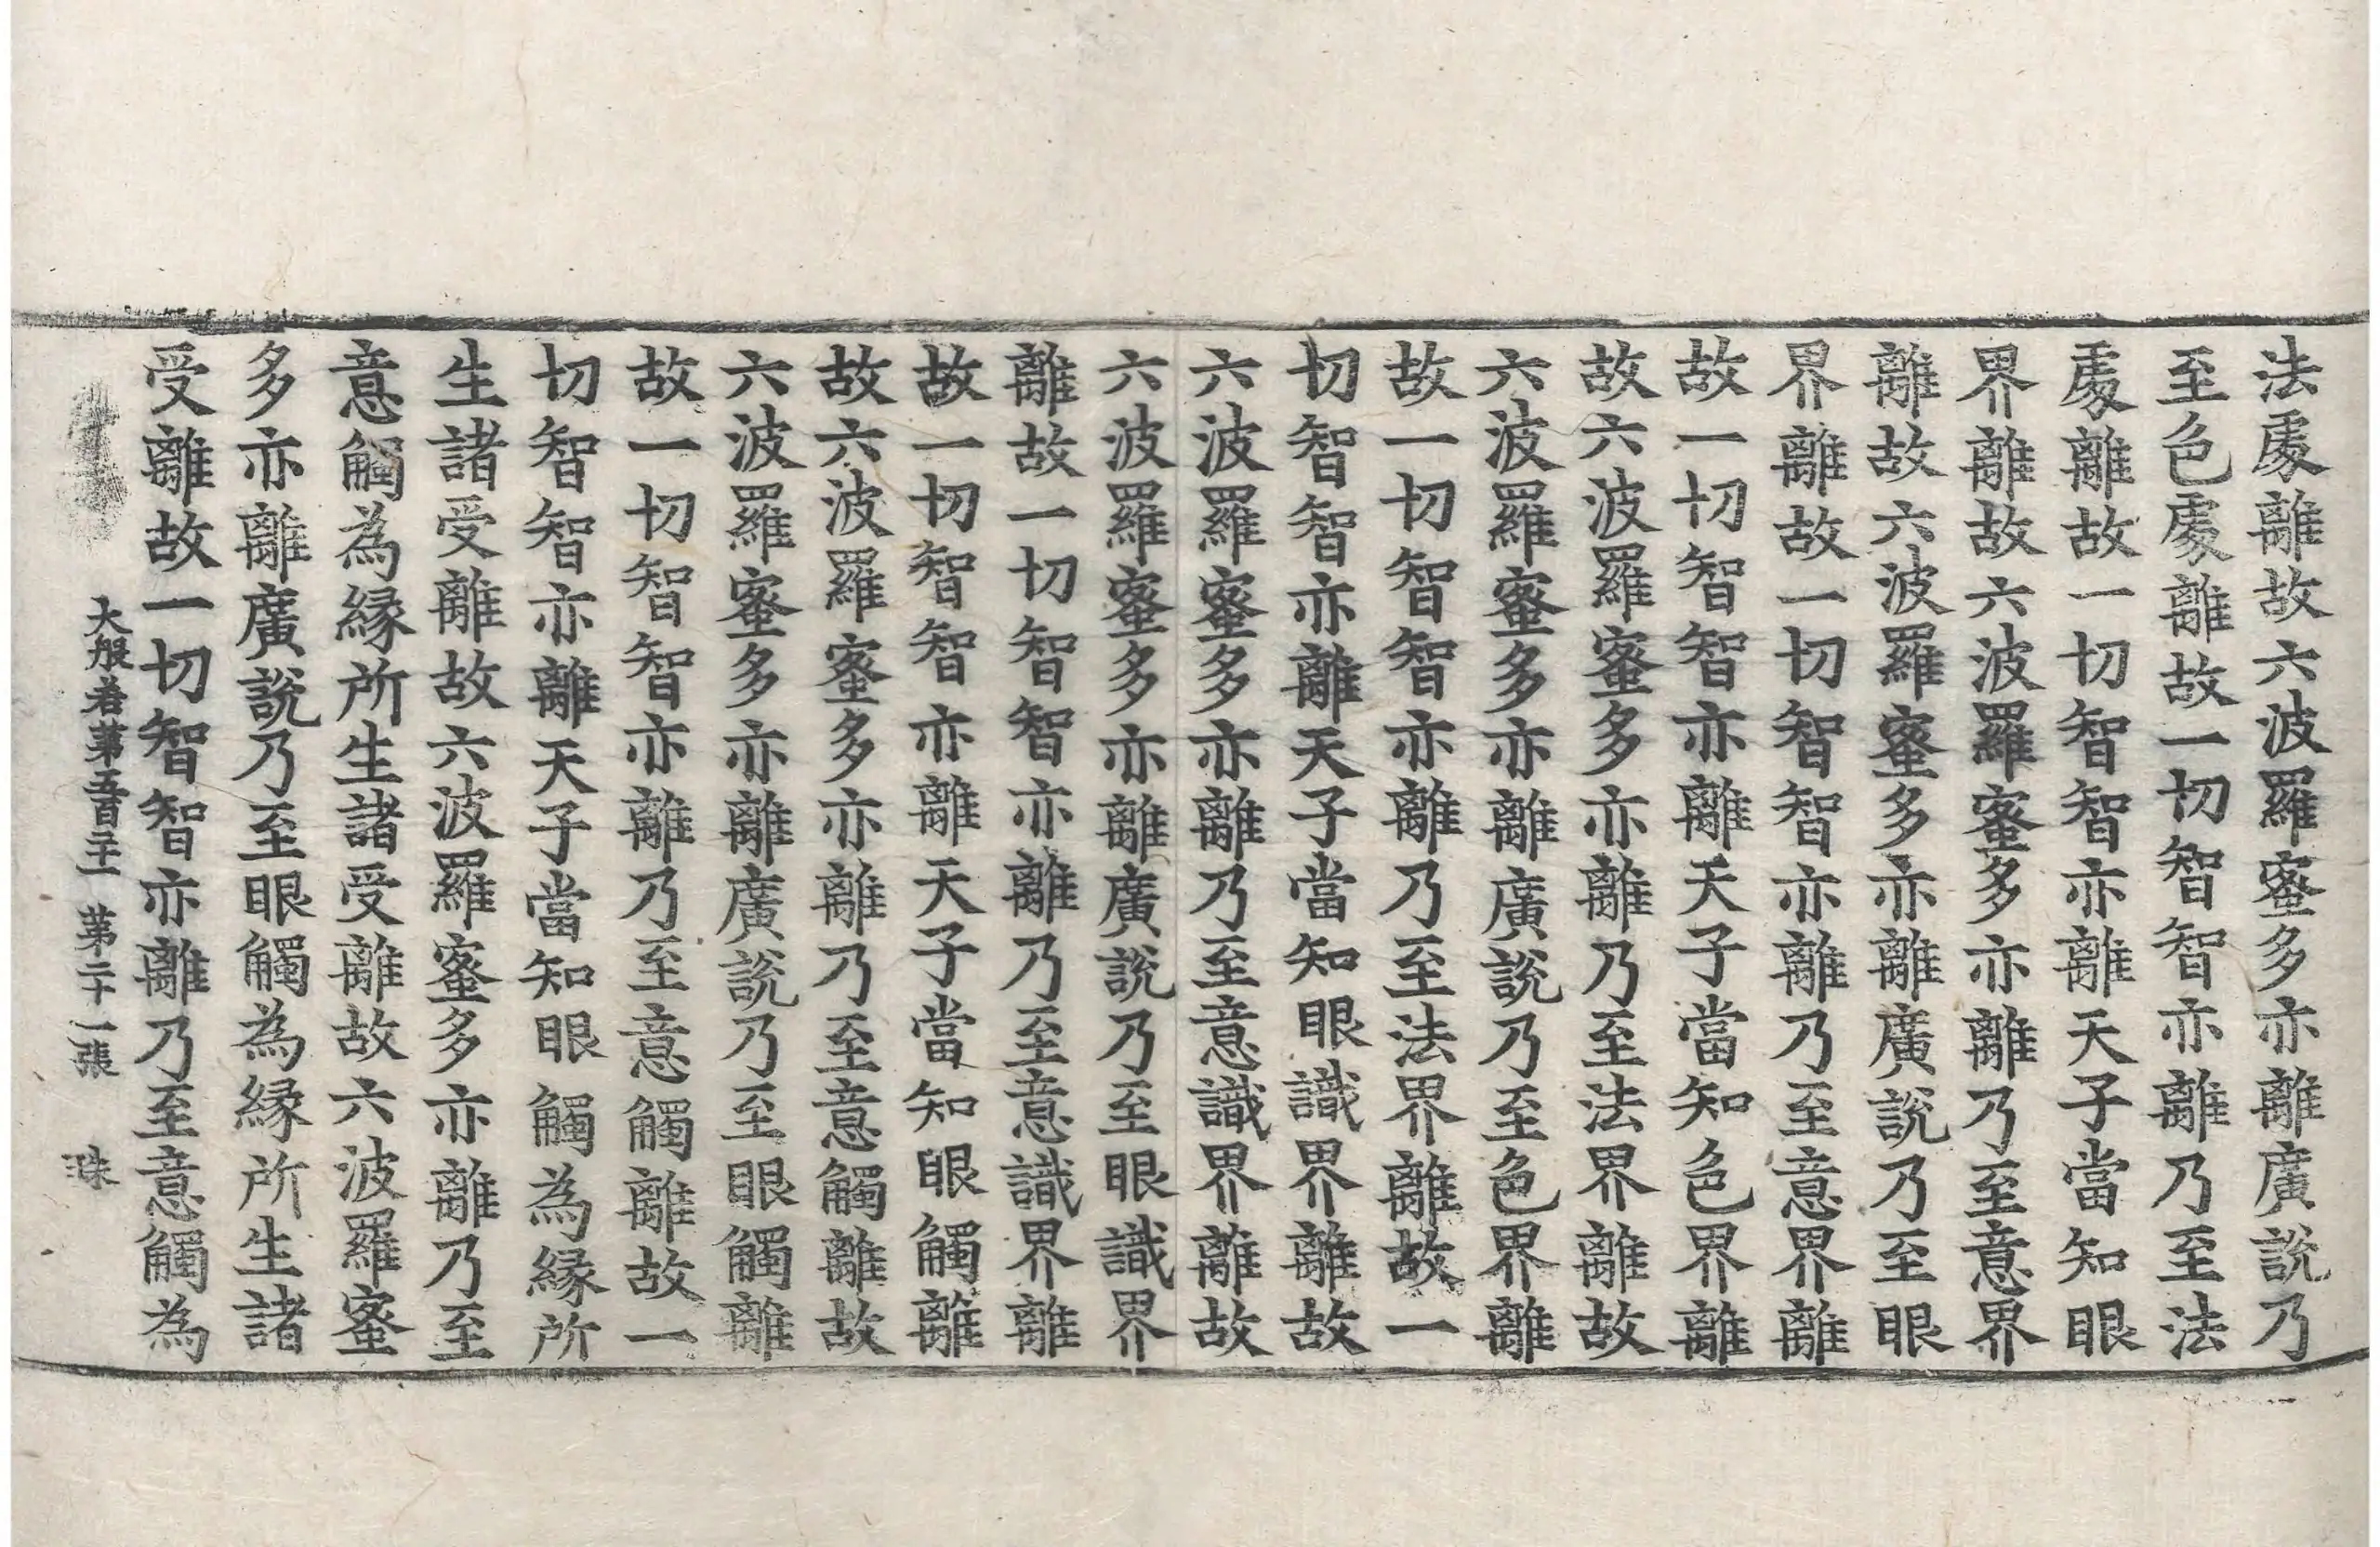 法處離故六波羅蜜多亦離廣說乃
至色處離故一切智智亦離乃至法
處離故一切智智亦離天子當知眼
界離故六波羅蜜多亦離乃至意界
離故六波羅蜜多亦離廣說乃至眼
界離故一切智智亦離乃至意界離
故一切智智亦離天子當知色界離
故六波羅蜜多亦離乃至法界離故
六波羅蜜多亦離廣說乃至色界離
故一切智智亦離乃至法界離故一
切智智亦離天子當知眼識界離故
六波羅蜜多亦離乃至意識界離故
六波羅蜜多亦離廣說乃至眼識界
離故一切智智亦離乃至意識界離
故一切智智亦離天子當知眼觸離
故六波羅蜜多亦離乃至意觸離故
六波羅蜜多亦離廣說乃至眼觸離
故一切智智亦離乃至意觸離故一
切智智亦離天子當知眼觸為緣所
生諸受離故六波羅蜜多亦離乃至
意觸為緣所生諸受離故六波羅蜜
多亦離廣說乃至眼觸為緣所生諸
受離故一切智智亦離乃至意觸為
大般若第五百二 第二十一張 珠